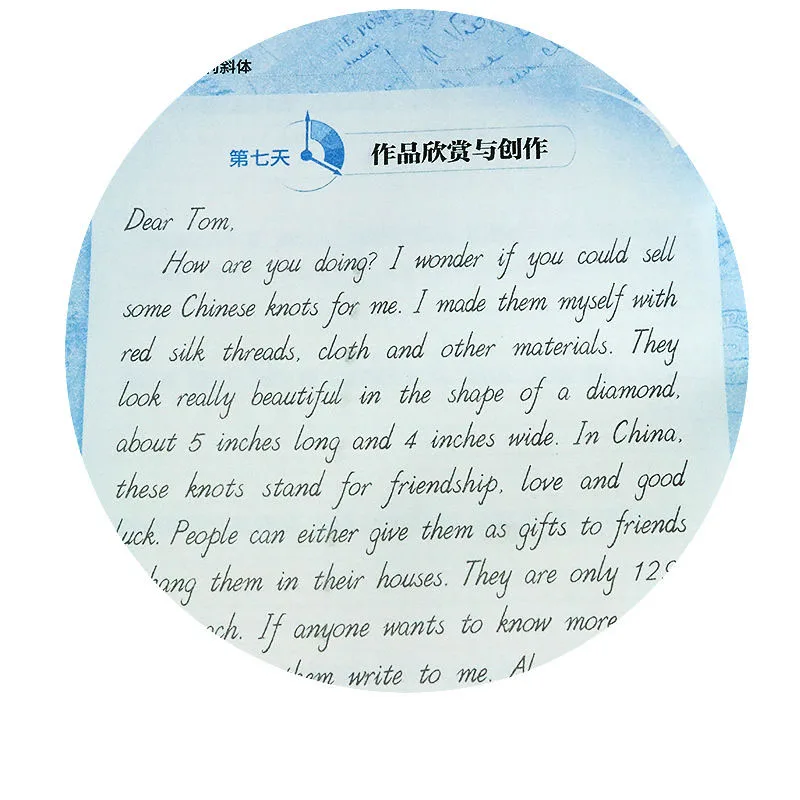 斜体
第七天
作品欣赏与创作
Dear Tom,
How are you doing? I wonder if you could sell
some Chinese knots for me. I made them myself with
red silk threads, cloth and other materials. They
look really beautiful in the shape of a diamond,
about 5 inches long and 4 inches wide. In China,
these knots stand for friendship, love and good
luck. People can either give them as gifts to friends
hang them in their houses. They are only
If anyone wants to know more
them write to me.